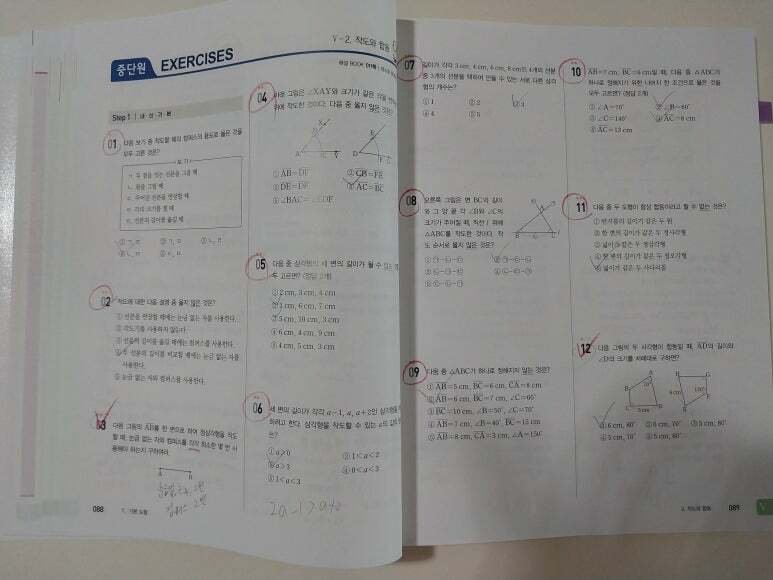 V-2. 작도와 합동
중단원 EXERCISES
Step 1 | 내 신 기 본
01 다음 보기 중 작도할 때의 컴퍼스의 용도로 옳은 것을
모두 고른 것은?
보기
ㄱ. 두 점을 잇는 선분을 그릴 때
ㄴ. 원을 그릴 때
ㄷ. 주어진 선분을 연장할 때
ㄹ. 각의 크기를 잴 때
ㅁ. 선분의 길이를 옮길 때
02 작도에 대한 다음 설명 중 옳지 않은 것은?
① 선분을 연장할 때에는 눈금 없는 자를 사용한다.
② 각도기를 사용하지 않는다.
③ 선분의 길이를 옮길 때에는 컴퍼스를 사용한다.
④ 두 선분의 길이를 비교할 때에는 눈금 없는 자를
사용한다.
⑤ 눈금 없는 자와 컴퍼스를 사용한다.
03
다음 그림의 AB를 한 변으로 하여 정삼각형을 작도
할 때, 눈금 없는 자와 컴퍼스를 각각 최소한 몇 번 사
용해야 하는지 구하여라.
A B
컴퍼스 2번
088 V. 기본 도형
04
X
A Y
① AB=DF ② CB=FE
③ DE=DF ④ AC=BC
05 다음 중 삼각형의 세 변의 길이가 될 수 있는
두 고르면? (정답 2개)
① 2 cm, 3 cm, 4 cm
② 1 cm, 6 cm, 7 cm
③ 5 cm, 10 cm, 3 cm
④ 6 cm, 4 cm, 9 cm
⑤ 4 cm, 5 cm, 3 cm
06 세 변의 길이가 각각 a-1, a, a+2인 삼각형을
하려고 한다. 삼각형을 작도할 수 있는 a의 값의
는?
① a>0 ③ 1<a<2
② a>3 ④ 0<a<3
⑤ 1<a<3
2a-1>a+2
07 길이가 각각 3 cm, 4 cm, 6 cm, 8 cm인 4개의 선분
중 3개의 선분을 택하여 만들 수 있는 서로 다른 삼각
형의 개수는?
① 1 ② 2 ③ 3
④ 4 ⑤ 5
08 오른쪽 그림은 변 BC의 길이
와 그 양 끝 각 ∠B와 ∠C의
크기가 주어질 때, 직선 l 위에
△ABC를 작도한 것이다. 작
도 순서로 옳지 않은 것은?
09 다음 중 △ABC가 하나로 정해지지 않는 것은?
① AB=5 cm, BC=6 cm, CA=8 cm
② AB=6 cm, BC=7 cm, ∠C=60°
③ BC=10 cm, ∠B=50°, ∠C=70°
④ AB=7 cm, ∠B=40°, BC=15 cm
⑤ AB=8 cm, CA=3 cm, ∠A=150°
10 AB=7 cm, BC=6 cm일 때, 다음 중 △ABC가
하나로 정해지기 위한 나머지 한 조건으로 옳은 것을
모두 고르면? (정답 2개)
① ∠A=70° ② ∠B=60°
③ ∠C=140° ④ AC=8 cm
⑤ AC=13 cm
11 다음 중 두 도형이 항상 합동이라고 할 수 없는 것은?
① 반지름의 길이가 같은 두 원
② 한 변의 길이가 같은 두 정사각형
③ 넓이가 같은 두 정삼각형
④ 한 변의 길이가 같은 두 정오각형
⑤ 넓이가 같은 두 사다리꼴
12 다음 그림의 두 사각형이 합동일 때, AD의 길이와
∠D의 크기를 차례대로 구하면?
① 6 cm, 80° ② 6 cm, 70° ③ 5 cm, 80°
④ 5 cm, 70° ⑤ 5 cm, 60°
2. 작도와 합동 089
V